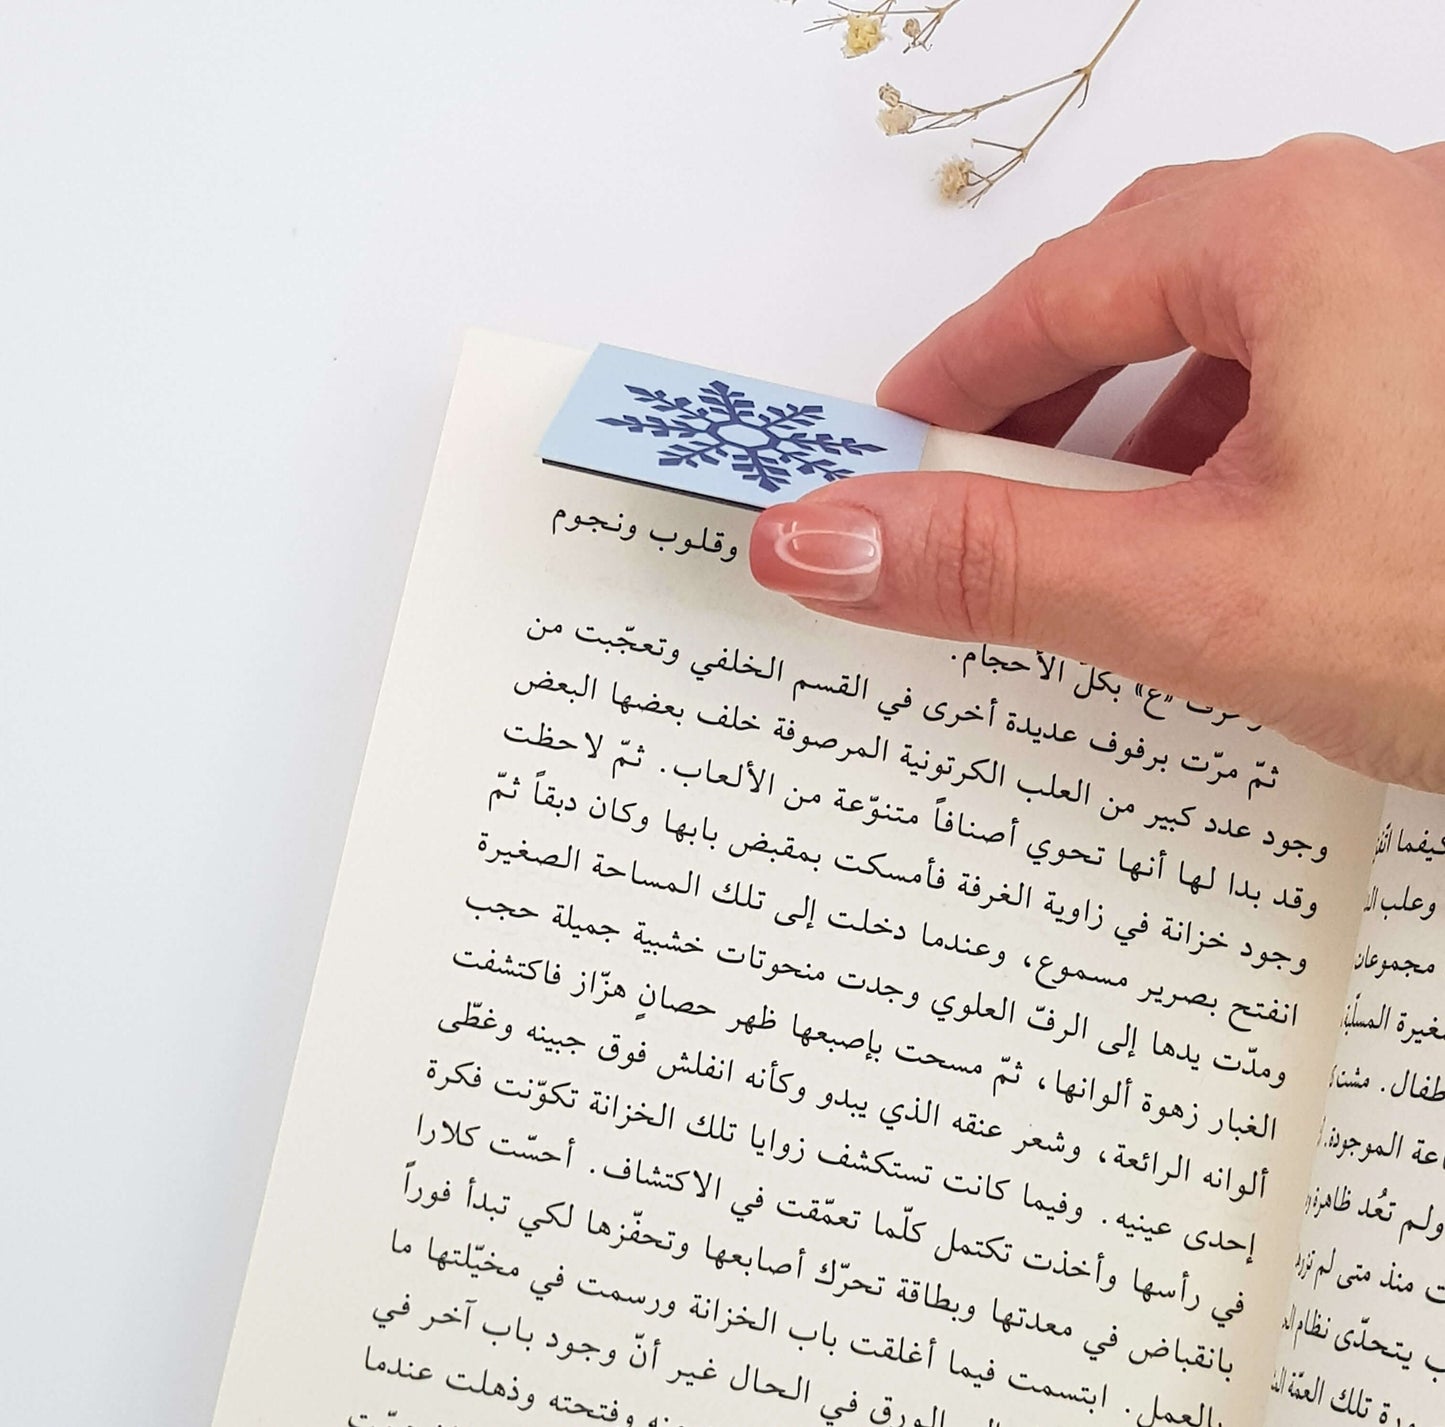 وقلوب ونجوم
«ع» بكلّ الأحجام.
ثمّ مرّت برفوف عديدة أخرى في القسم الخلفي وتعجّبت من
وجود عدد كبير من العلب الكرتونية المرصوفة خلف بعضها البعض
وقد بدا لها أنها تحوي أصنافاً متنوّعة من الألعاب. ثمّ لاحظت
وجود خزانة في زاوية الغرفة فأمسكت بمقبض بابها وكان دبقاً ثمّ
انفتح بصرير مسموع، وعندما دخلت إلى تلك المساحة الصغيرة
ومدّت يدها إلى الرفّ العلوي وجدت منحوتات خشبية جميلة حجب
الغبار زهوة ألوانها، ثمّ مسحت بإصبعها ظهر حصانٍ هزّاز فاكتشفت
ألوانه الرائعة، وشعر عنقه الذي يبدو وكأنه انفلش فوق جبينه وغطّى
إحدى عينيه. وفيما كانت تستكشف زوايا تلك الخزانة تكوّنت فكرة
في رأسها وأخذت تكتمل كلّما تعمّقت في الاكتشاف. أحسّت كلارا
بانقباض في معدتها وبطاقة تحرّك أصابعها وتحفّزها لكي تبدأ فوراً
بالعمل. ابتسمت فيما أغلقت باب الخزانة ورسمت في مخيّلتها ما
الورق في الحال غير أنّ وجود باب آخر في
وفتحته وذهلت عندما
كيفما
وعلب
مجموعات
المسلّية
طفال.
الموجودة.
ولم تعُد ظاهرة
منذ متى لم
يتحدّى نظام
تلك العمّة